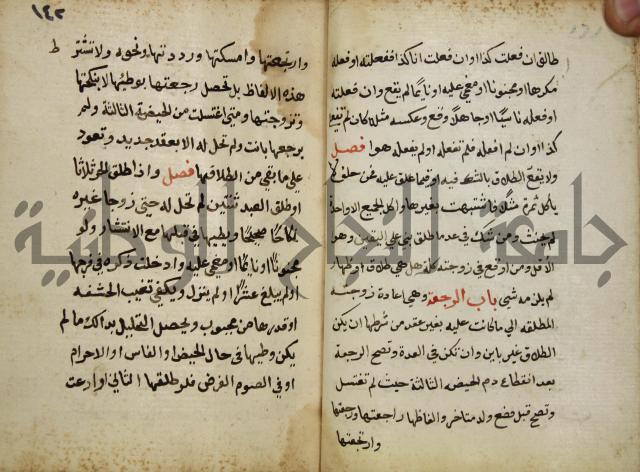 طالق ان فعلت كذا او ان فعلت انا كذا ففعلته او فعله
مكرها او مجنونا او مغمي عليه او نايما لم يقع وان فعلته
او فعله ناسيا او جاهلا وقع وعكسه مثله كان لم تفعل
كذا او ان لم افعله فلم تفعله او لم يفعله هو فصل
ولا يقع الطلاق بالشك فيه او فيما علق عليه فمن حلف لا
ياكل ثمرة مثلا فاشتبهت بغيرها واكل الجميع الا واحدة
لم يحنث ومن شك في عدد ما طلق بني علي اليقين وهو
الاقل ومن اوقع في زوجته كلمة هل هي طلاق او ظهار
لم يلزمه شي باب الرجعة وهي اعادة زوجته
المطلقه الي ما كانت عليه بغير عقد من شرطها ان يكون
الطلاق غير باين وان تكن في العدة وتصح الرجعة
بعد انقطاع دم الحيضه الثالثة حيث لم تغتسل
وتصح قبل وضع ولد متاخر والفاظها راجعتها ورجعتها
وارتجعتها
١٤٢
وارتجعتها وامسكتها ورددتها ونحوه ولا تشترط
هذه الالفاظ بل تحصل رجعتها بوطئها لا بنكحتها
وتزوجتها ومتي اغتسلت من الحيضة الثالثة ولم
يرجعها بانت ولم تحل له الا بعقد جديد وتعود
علي ما بقي من الطلاقها فصل واذا طلق الحر ثلاثا
او طلق العبد ثنتين لم تحل له حتي تنكح زوجا غيره
نكاحا صحيحا ويطيها في قبلها مع الانتشار ولو
مجنونا او نايما او مغمي عليه وادخلت ذكره في فرجها
او لم يبلغ عشرا او لم ينزل ويكفي تغيب الحشفه
او قدرها من مجبوب ويحصل التحليل بذالك ما لم
يكن وطيها في حال الحيض او النفاس او الاحرام
او في الصوم الفرض فلو طلقها الثاني وادعت
جامعة النجاح الوطنية